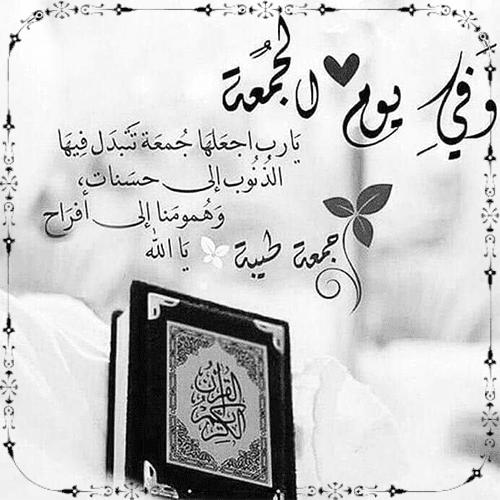 وَفي يوم الجُمعَة
يَارب اجعَلهَا جُمعَة تتَبدَل فِيهَا
الذُنُوب إلى حسَنات،
وَهُمومَنا إلى أفرَاح
يَا الله
جمعة طيبة
القرآن الكريم